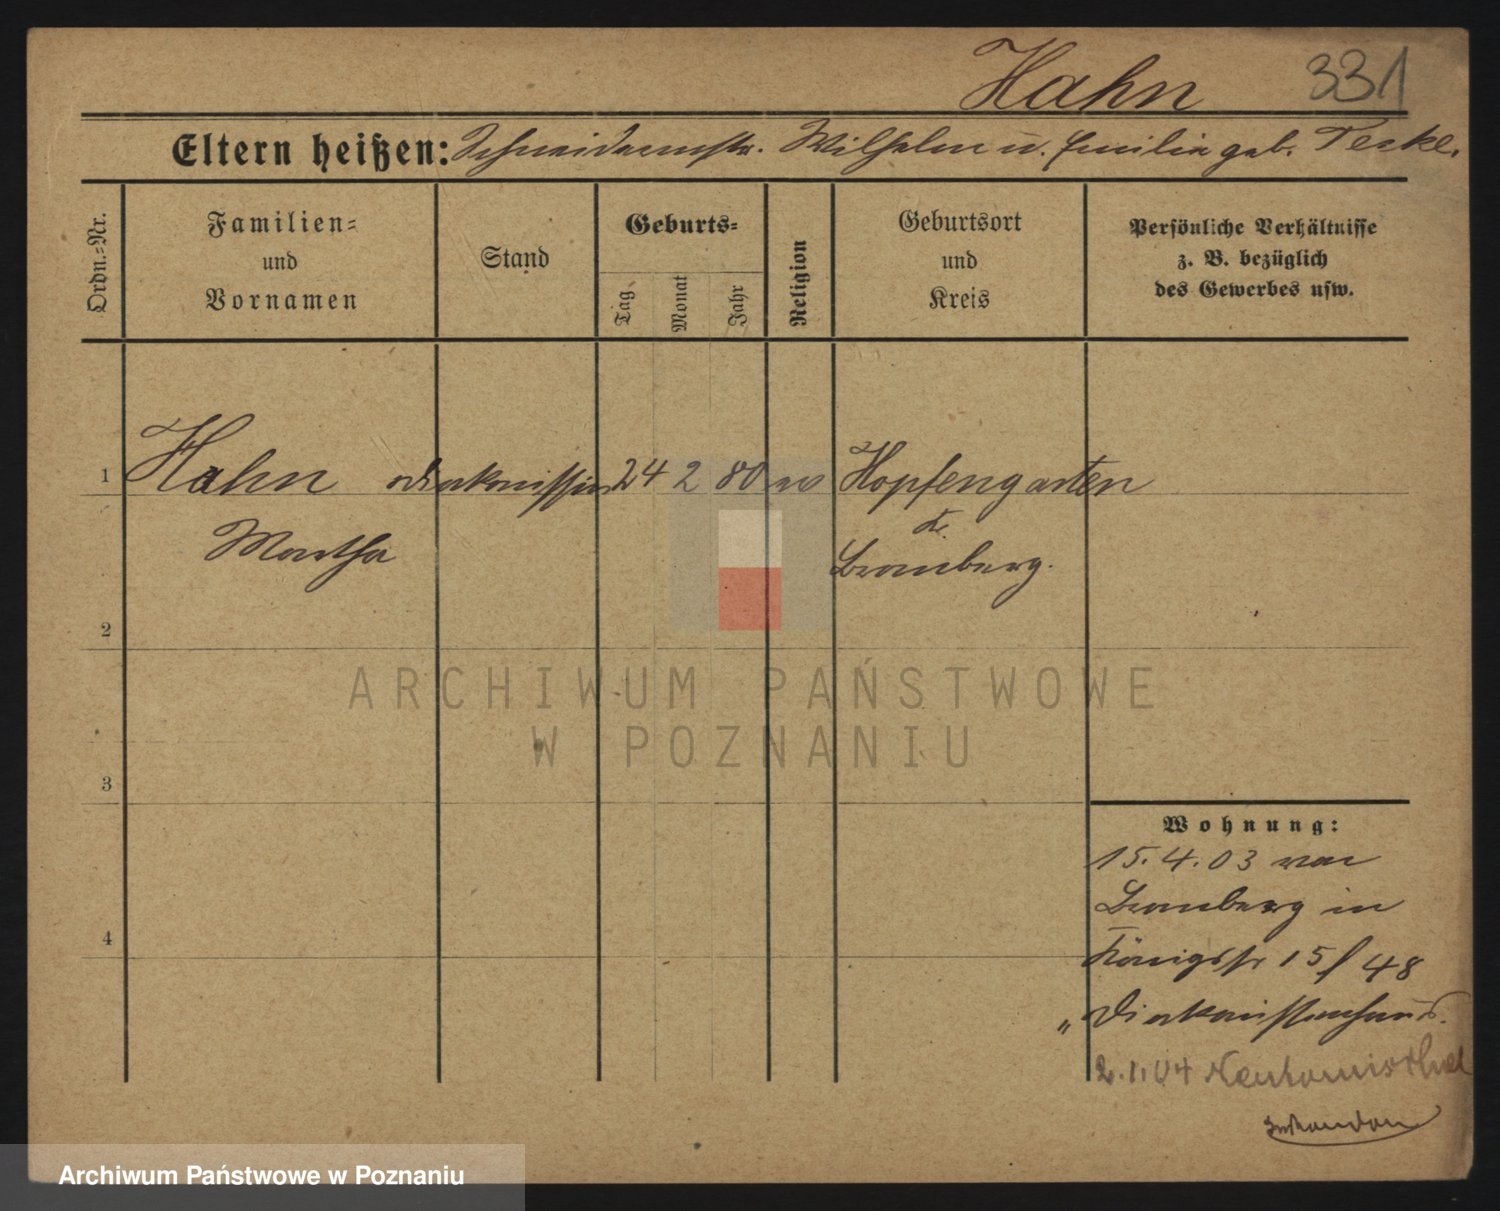 Hahn 331
Eltern heißen: Schneidermstr. Wilhelm u. Emilie geb. Teske.
Ordn.=Nr.
Familien=
und
Vornamen
Stand
Geburts=
Tag
Monat
Jahr
Religion
Geburtsort
und
Kreis
Persönliche Verhältnisse
z. B. bezüglich
des Gewerbes usw.
1 Hahn Diakonissin 24 2 80 ev Hopfengarten
Kr.
Martha Bromberg.
2
3
4
Wohnung:
15.4.03 von
Bromberg in
Königsstr 15/48
„ Diakonissenhaus.
2.1.04 Neutomischel
ARCHIWUM PAŃSTWOWE
W POZNANIU
Archiwum Państwowe w Poznaniu